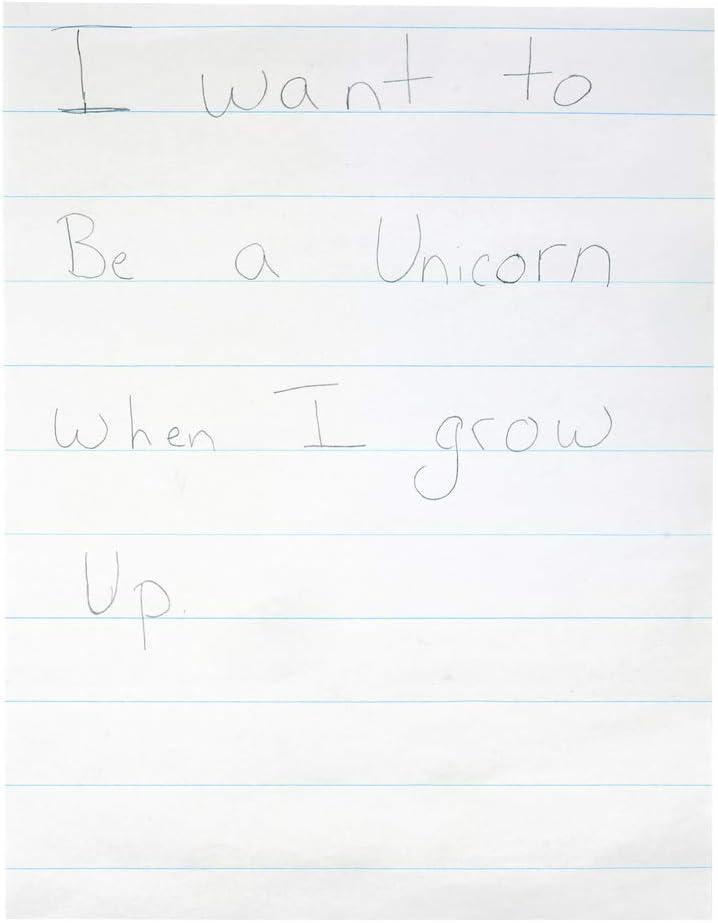 I want to
Be a Unicorn
when I grow
Up.